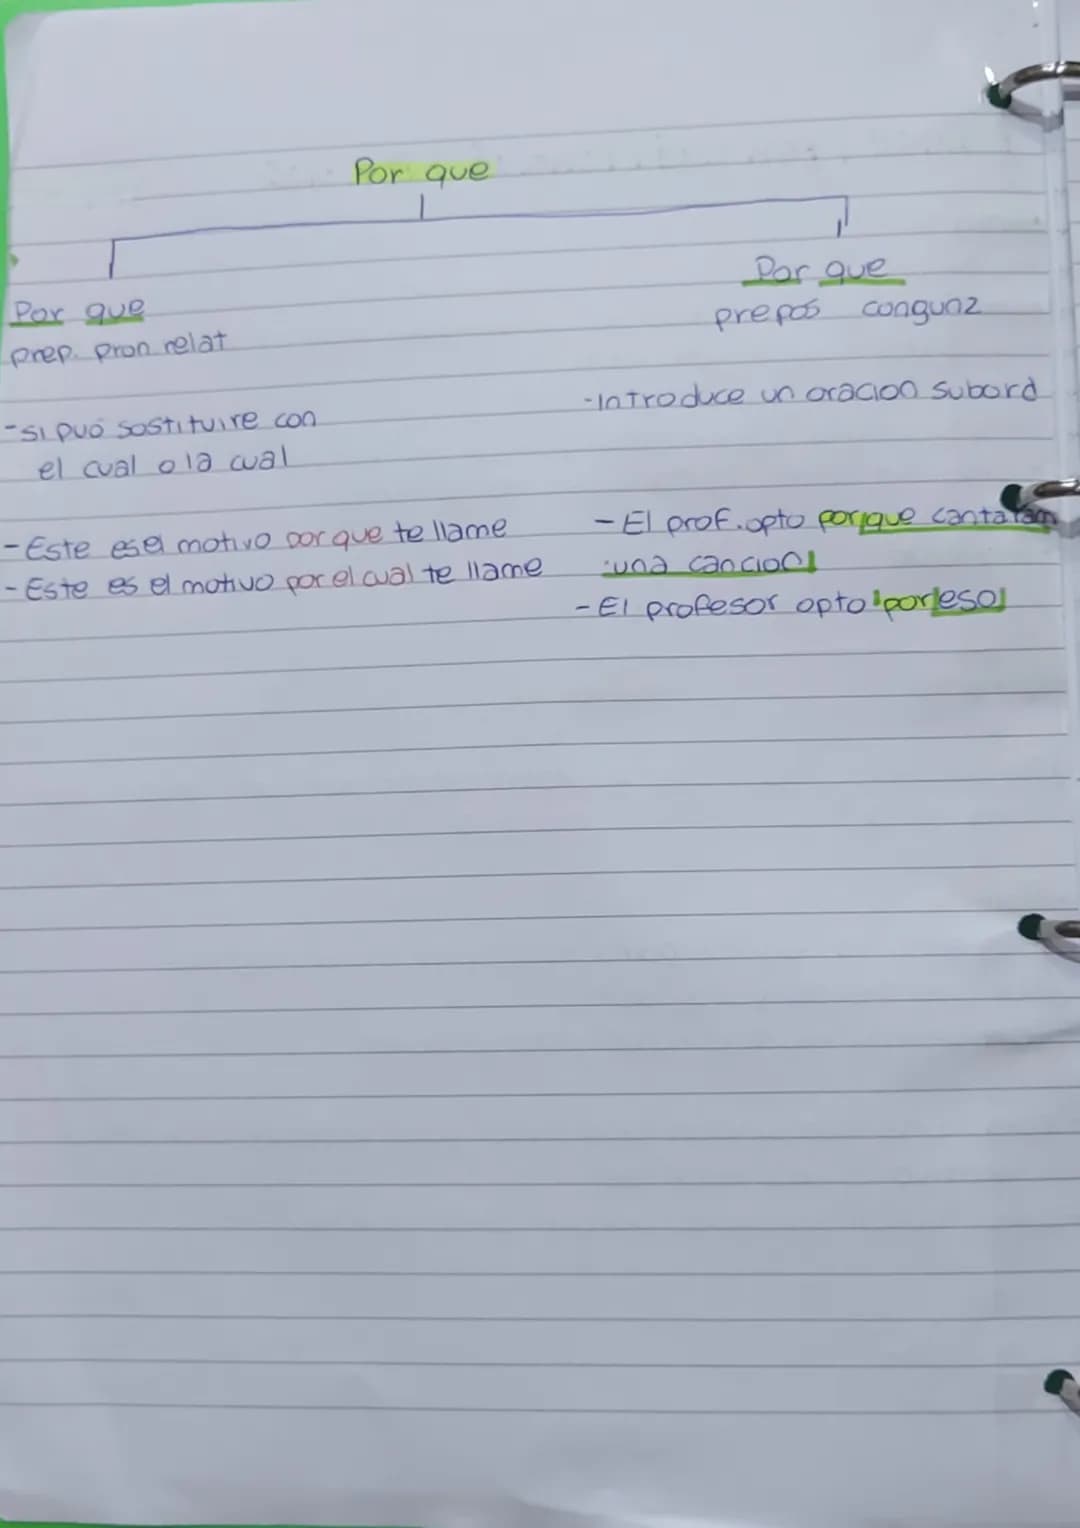 Por que
Por que
prep. pron relat
-si può sostituire con
el cual o la cual
-Este es el motivo por que te llame
-Este es el motivo por el cual te llame
Por que
prepos congunz
-Introduce un oracion subord
-El prof. opto por que cantaram
una cancion
-El profesor opto por eso